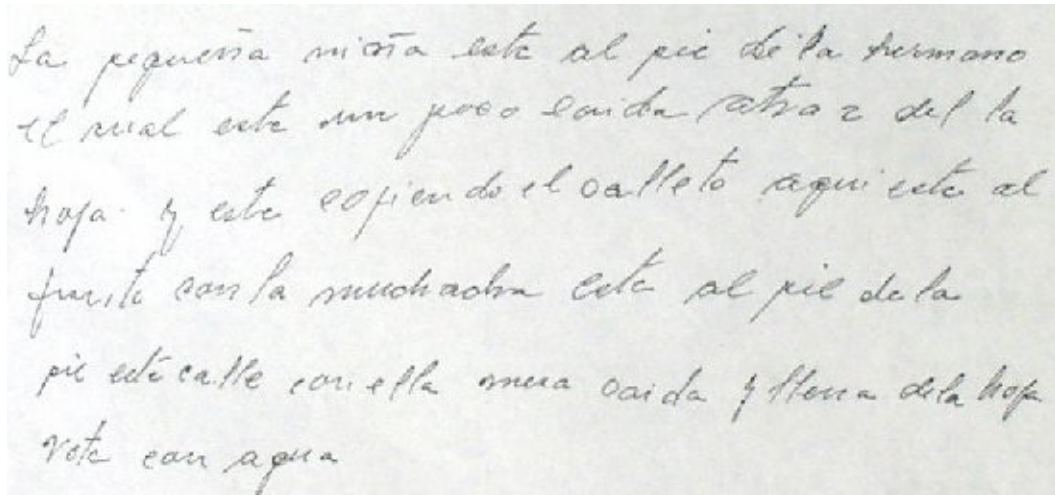 La pequeña niña esta al pie de la hermano
el cual esta un poco caida atraz del la
hoja y esta cogiendo el calleto aqui esta al
frente con la muchacha esta al pie de la
pie este calle con ella mesa caida y llena de la hoja
rota con agua